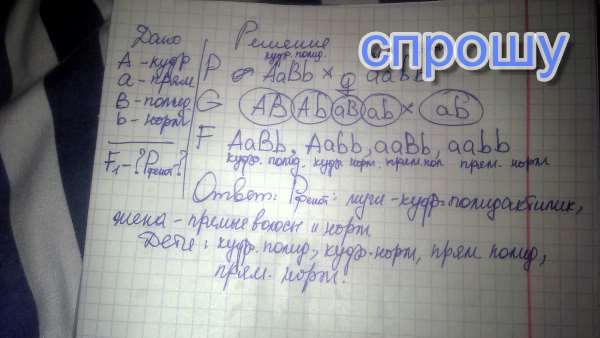 Дано
Решение
спрошу
A - кудр
a - прям
B - полид
b - норм
F₁-? Pфенот-?
кудр. полид.
P ♂ AaBb × ♀ aabb
G AB Ab aB ab × ab
F AaBb, Aabb, aaBb, aabb
кудр. полид. кудр. норм. прям. пол. прям. норм
Ответ: Pфенот: муж - кудр. полидактилик,
жена - прямые волосы и норм
Дети: кудр. полид, кудр. норм, прям полид,
прям. норм.